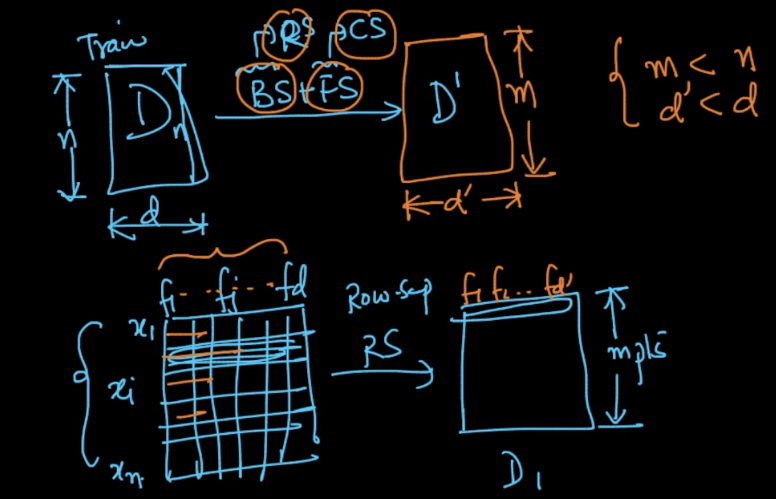 Train
RS CS
BS+FS
D
n
d
D'
m
d'
m < n
d' < d
f1 ... fj ... fd
x1
xi
xn
Row-Sap
RS
f1 f2 ... fd'
m pts
D1